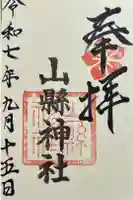 奉拝
山縣神社
令和七年九月十五日